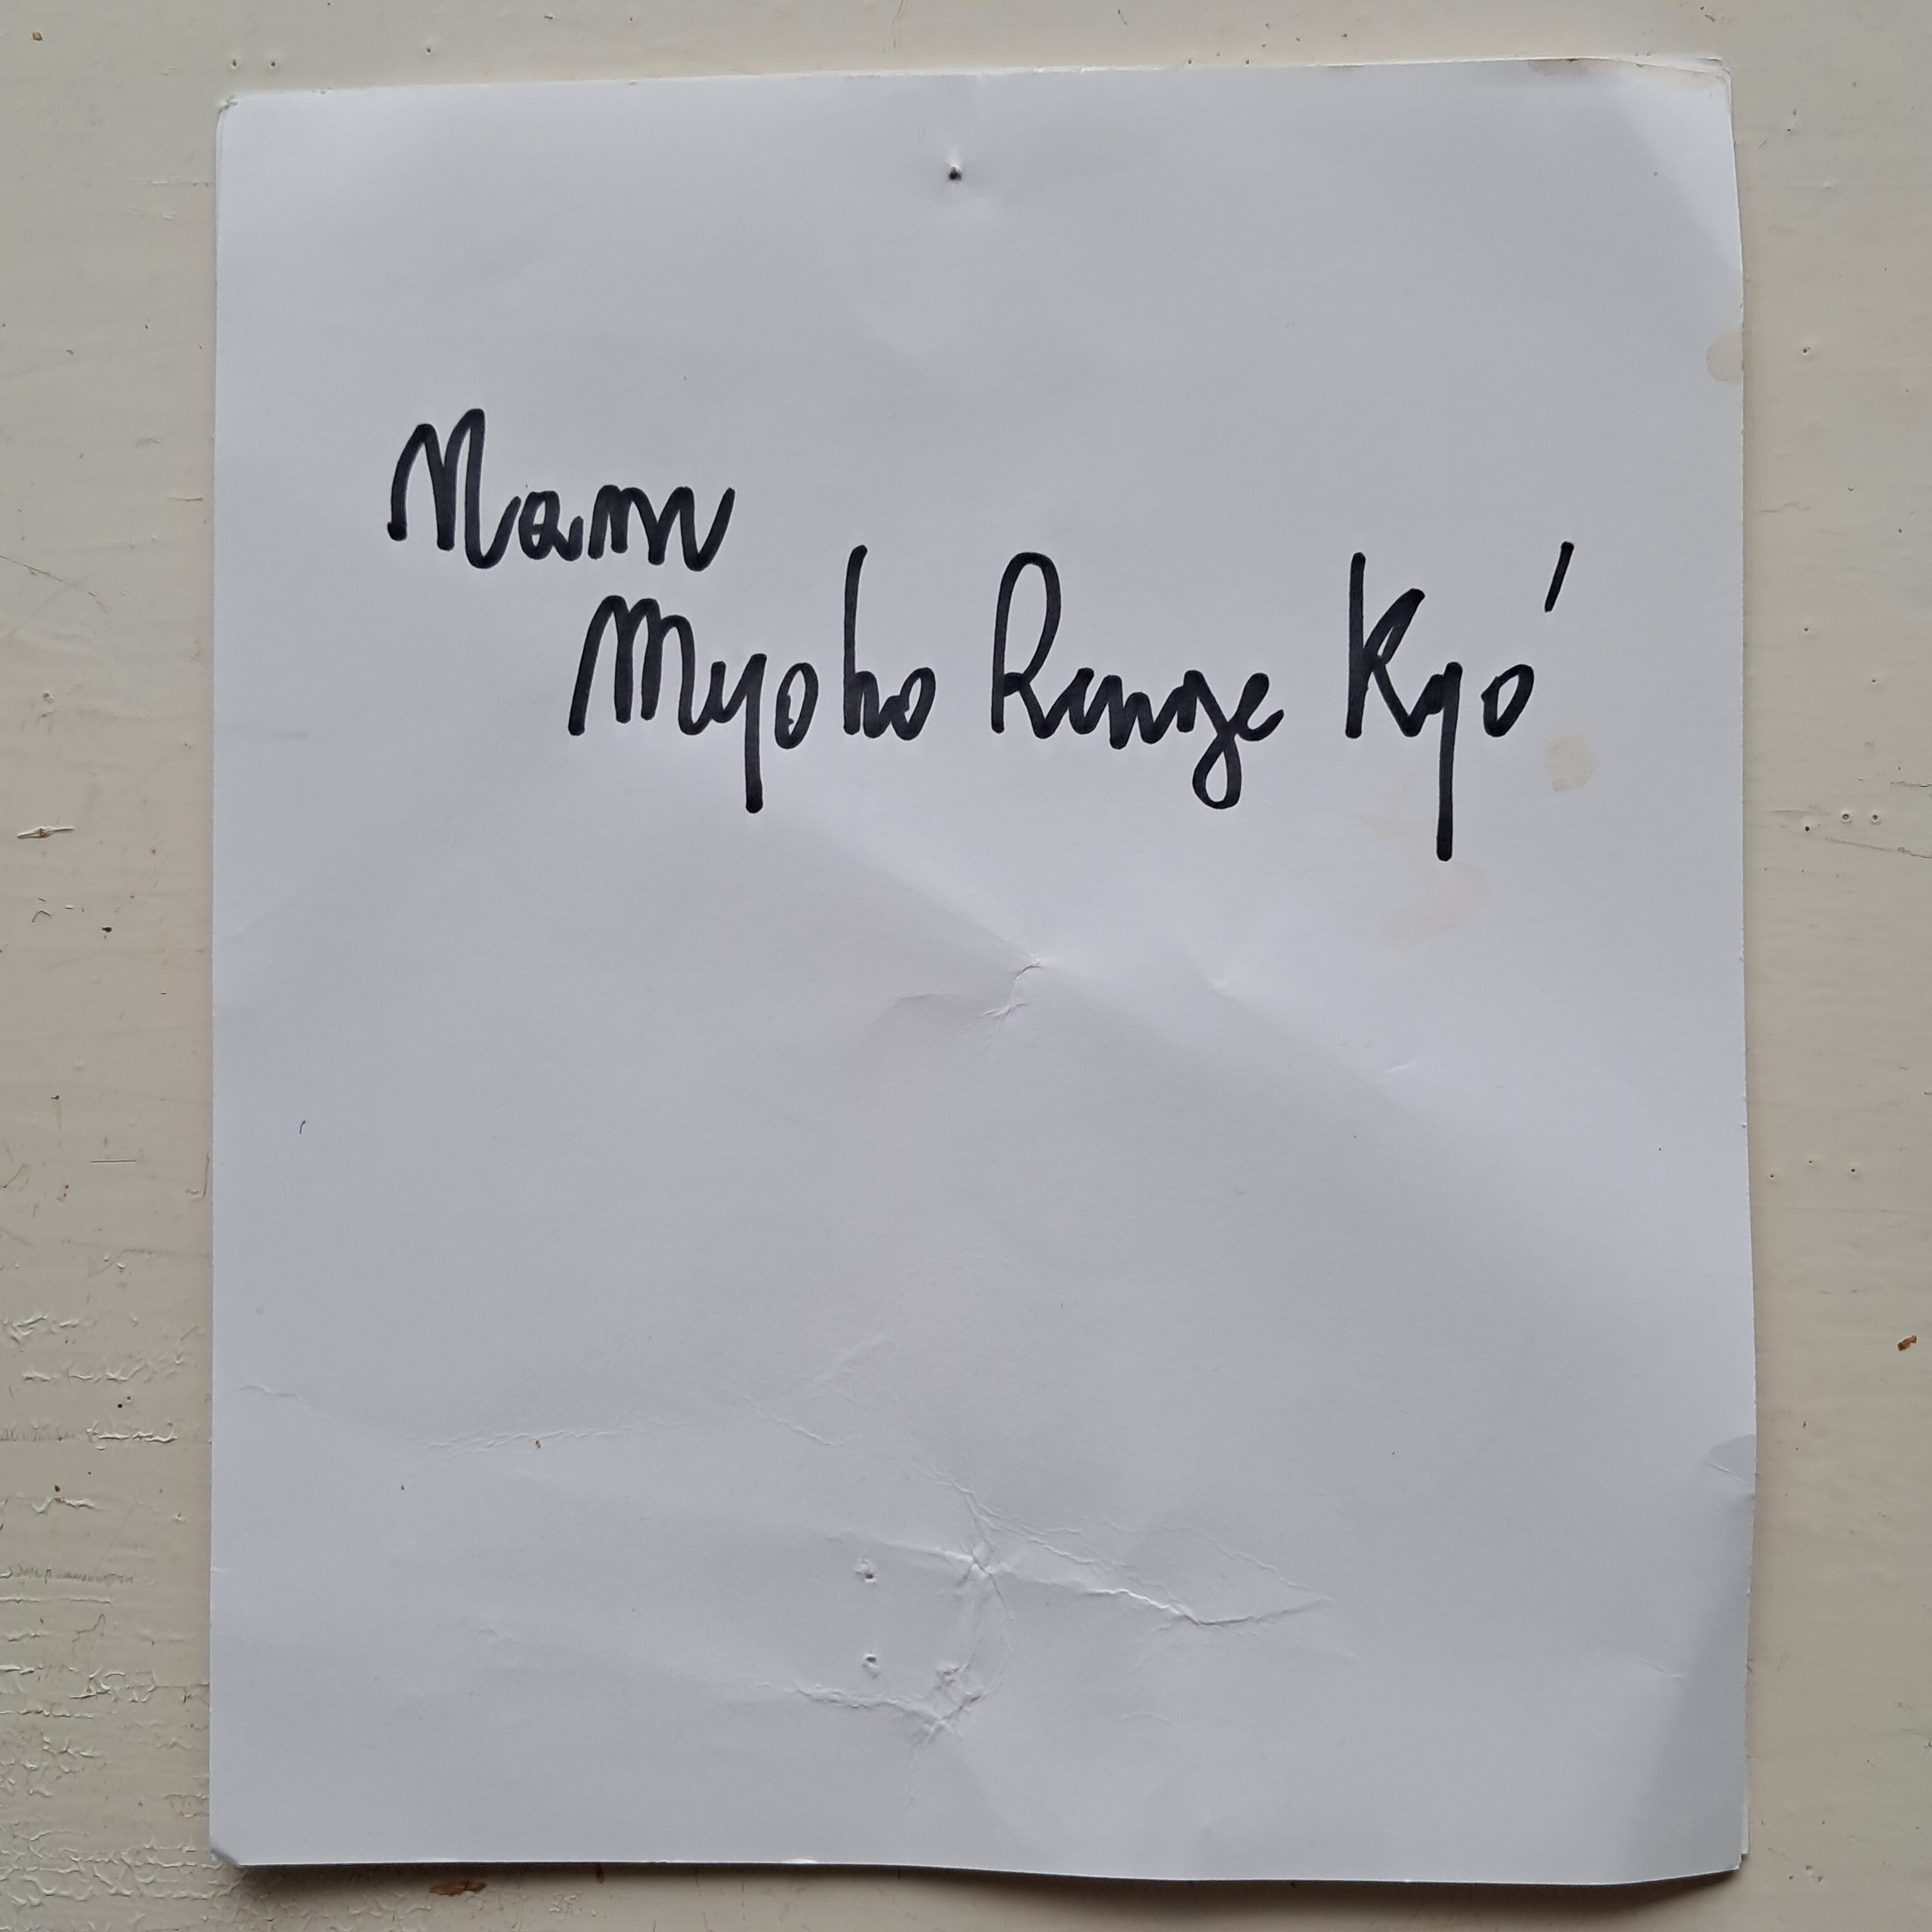 Nam
Myoho Renge Kyó